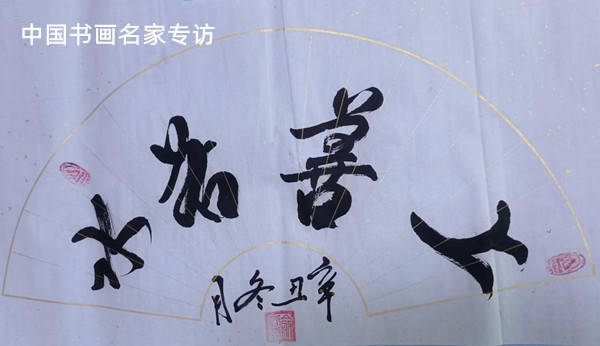 中国书画名家专访
上善若水
辛丑冬月